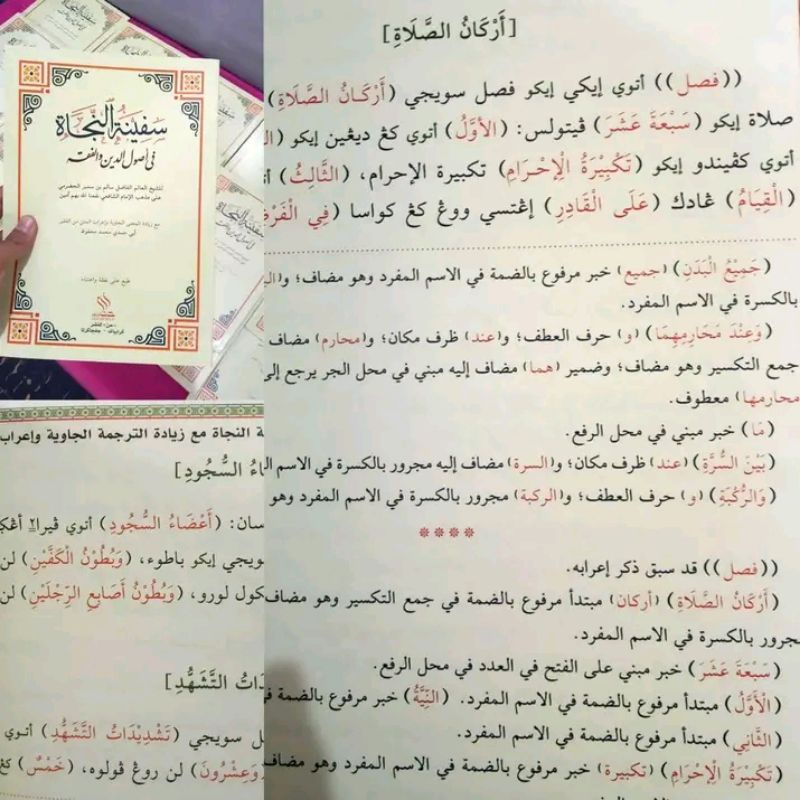 سَفِينَةُ النَّجَاة
في أصول الدين والفقه
للشيخ العالم الفاضل سالم بن سمير الحضرمي
على مذهب الإمام الشافعي نفعنا الله بهم آمين
مع زيادة المعنى الجاوية وإعراب المتن من الفقير
أبي حمدي محمد محفوظ
طبع على نفقة واعتناء
[أَرْكَانُ الصَّلَاةِ]
((فصل)) أتوي إيكي إيكو فصل سويجي (أَرْكَانُ الصَّلَاةِ)
صلاة إيكو (سَبْعَةَ عَشَرَ) ڤيتولس: (الأَوَّلُ) أتوي كڠ ديڠين إيكو
أتوي كڤيندو إيكو (تَكْبِيرَةُ الْإِحْرَامِ) تكبيرة الإحرام، (الثَّالِثُ)
(الْقِيَامُ) ڠادك (عَلَى الْقَادِرِ) إڠتسي ووڠ كڠ كواسا (فِي الْفَرْضِ
(جَمِيْعُ الْبَدَنِ) (جميع) خبر مرفوع بالضمة في الاسم المفرد وهو مضاف؛
بالكسرة في الاسم المفرد.
(وَعِنْدَ مَحَارِمِهِمَا) (و) حرف العطف؛ و(عند) ظرف مكان؛ و(محارم) مضاف
جمع التكسير وهو مضاف؛ وضمير (هما) مضاف إليه مبني في محل الجر يرجع إلى
محارمها) معطوف.
(مَا) خبر مبني في محل الرفع.
(بَيْنَ السُّرَّةِ) (عند) ظرف مكان؛ و(السرة) مضاف إليه مجرور بالكسرة في الاسم
(وَالرُّكْبَةِ) (و) حرف العطف؛ و(الركبة) مجرور بالكسرة في الاسم المفرد وهو
((فصل)) قد سبق ذكر إعرابه.
(أَرْكَانُ الصَّلَاةِ) (أركان) مبتدأ مرفوع بالضمة في جمع التكسير وهو مضاف
مجرور بالكسرة في الاسم المفرد.
(سَبْعَةَ عَشَرَ) خبر مبني على الفتح في العدد في محل الرفع.
(الْأَوَّلُ) مبتدأ مرفوع بالضمة في الاسم المفرد. (النِّيَّةُ) خبر مرفوع بالضمة
(الثَّانِي) مبتدأ مرفوع بالضمة في الاسم المفرد.
(تَكْبِيْرَةُ الْإِحْرَامِ) (تكبيرة) خبر مرفوع بالضمة في الاسم المفرد وهو مضاف
ة النجاة مع زيادة الترجمة الجاوية وإعراب
ضَاءُ السُّجُودِ]
سان: (أَعْضَاءُ السُّجُودِ) أتوي ڤيرا٢
سويجي إيكو باطوء، (وَبُطُوْنُ الْكَفَّيْنِ) لن
كول لورو، (وَبُطُوْنُ أَصَابِعِ الرِّجْلَيْنِ) لن
دَاتُ التَّشَهُّدِ]
ل سويجي (تَشْدِيْدَاتُ التَّشَهُّدِ) أتوي
وَعِشْرُونَ) لن روڠ ڤولوه، (خَمْسٌ) كڠ